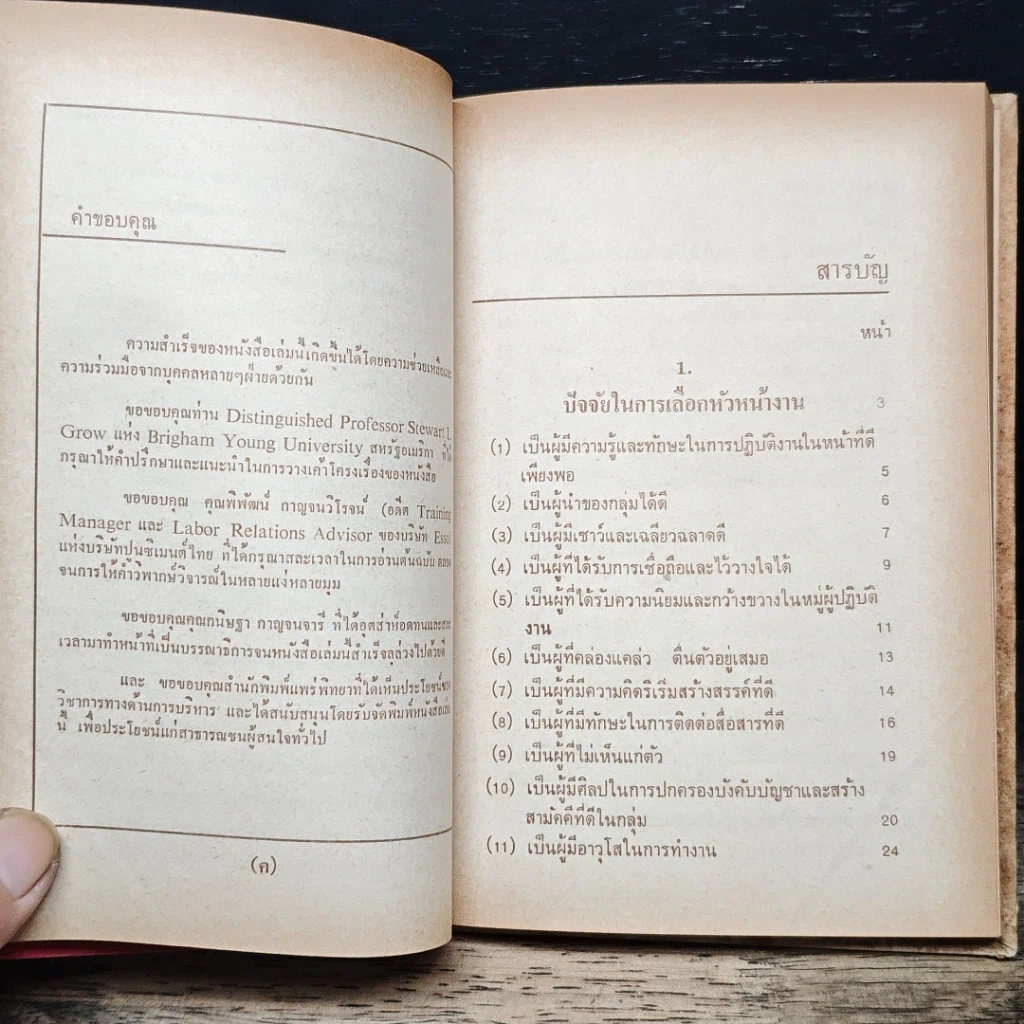 คำขอบคุณ
ความสำเร็จของหนังสือเล่มนี้เกิดขึ้นได้โดยความช่วยเหลือและ
ความร่วมมือจากบุคคลหลายๆฝ่ายด้วยกัน
ขอขอบคุณท่าน Distinguished Professor Stewart L.
Grow แห่ง Brigham Young University สหรัฐอเมริกา ที่ได้
กรุณาให้คำปรึกษาและแนะนำในการวางเค้าโครงเรื่องของหนังสือ
ขอขอบคุณ คุณพิพัฒน์ กาญจนวิโรจน์ (อดีต Training
Manager และ Labor Relations Advisor ของบริษัท Esso)
แห่งบริษัทปูนซิเมนต์ไทย ที่ได้กรุณาสละเวลาในการอ่านต้นฉบับ ตลอด
จนการให้คำวิพากษ์วิจารณ์ในหลายแง่หลายมุม
ขอขอบคุณคุณกนิษฐา กาญจนจารี ที่ได้อุตส่าห์อดทนและสละ
เวลามาทำหน้าที่เป็นบรรณาธิการจนหนังสือเล่มนี้สำเร็จลุล่วงไปด้วยดี
และ ขอขอบคุณสำนักพิมพ์แพร่พิทยาที่ได้เห็นประโยชน์ของ
วิชาการทางด้านการบริหาร และได้สนับสนุนโดยรับจัดพิมพ์หนังสือเล่ม
นี้ เพื่อประโยชน์แก่สาธารณชนผู้สนใจทั่วไป
(ค)
สารบัญ
หน้า
1.
ปัจจัยในการเลือกหัวหน้างาน 3
(1) เป็นผู้มีความรู้และทักษะในการปฏิบัติงานในหน้าที่ดี
เพียงพอ 5
(2) เป็นผู้นำของกลุ่มได้ดี 6
(3) เป็นผู้มีเชาว์และเฉลียวฉลาดดี 7
(4) เป็นผู้ที่ได้รับการเชื่อถือและไว้วางใจได้ 9
(5) เป็นผู้ที่ได้รับความนิยมและกว้างขวางในหมู่ผู้ปฏิบัติ
งาน 11
(6) เป็นผู้ที่คล่องแคล่ว ตื่นตัวอยู่เสมอ 13
(7) เป็นผู้ที่มีความคิดริเริ่มสร้างสรรค์ที่ดี 14
(8) เป็นผู้ที่มีทักษะในการติดต่อสื่อสารที่ดี 16
(9) เป็นผู้ที่ไม่เห็นแก่ตัว 19
(10) เป็นผู้มีศิลปในการปกครองบังคับบัญชาและสร้าง
สามัคคีที่ดีในกลุ่ม 20
(11) เป็นผู้มีอาวุโสในการทำงาน 24